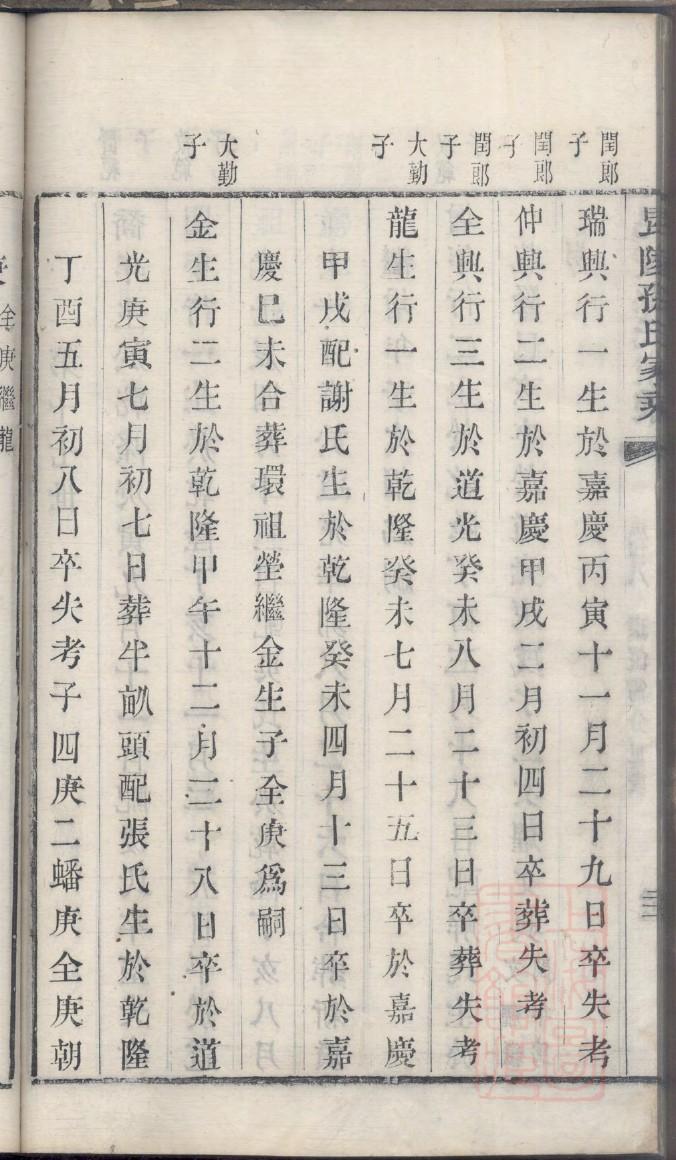 毘陵孫氏家乘
閏郎子
瑞興行一生於嘉慶丙寅十一月二十九日卒失考
閏郎子
仲興行二生於嘉慶甲戌二月初四日卒葬失考
閏郎子
全興行三生於道光癸未八月二十三日卒葬失考
大勤子
龍生行一生於乾隆癸未七月二十五日卒於嘉慶
甲戌配謝氏生於乾隆癸未四月十三日卒於嘉
慶巳未合葬環祖塋繼金生子全庚爲嗣
大勤子
金生行二生於乾隆甲午十二月二十八日卒於道
光庚寅七月初七日葬半畝頭配張氏生於乾隆
丁酉五月初八日卒失考子四庚二蟠庚全庚朝
全庚繼龍